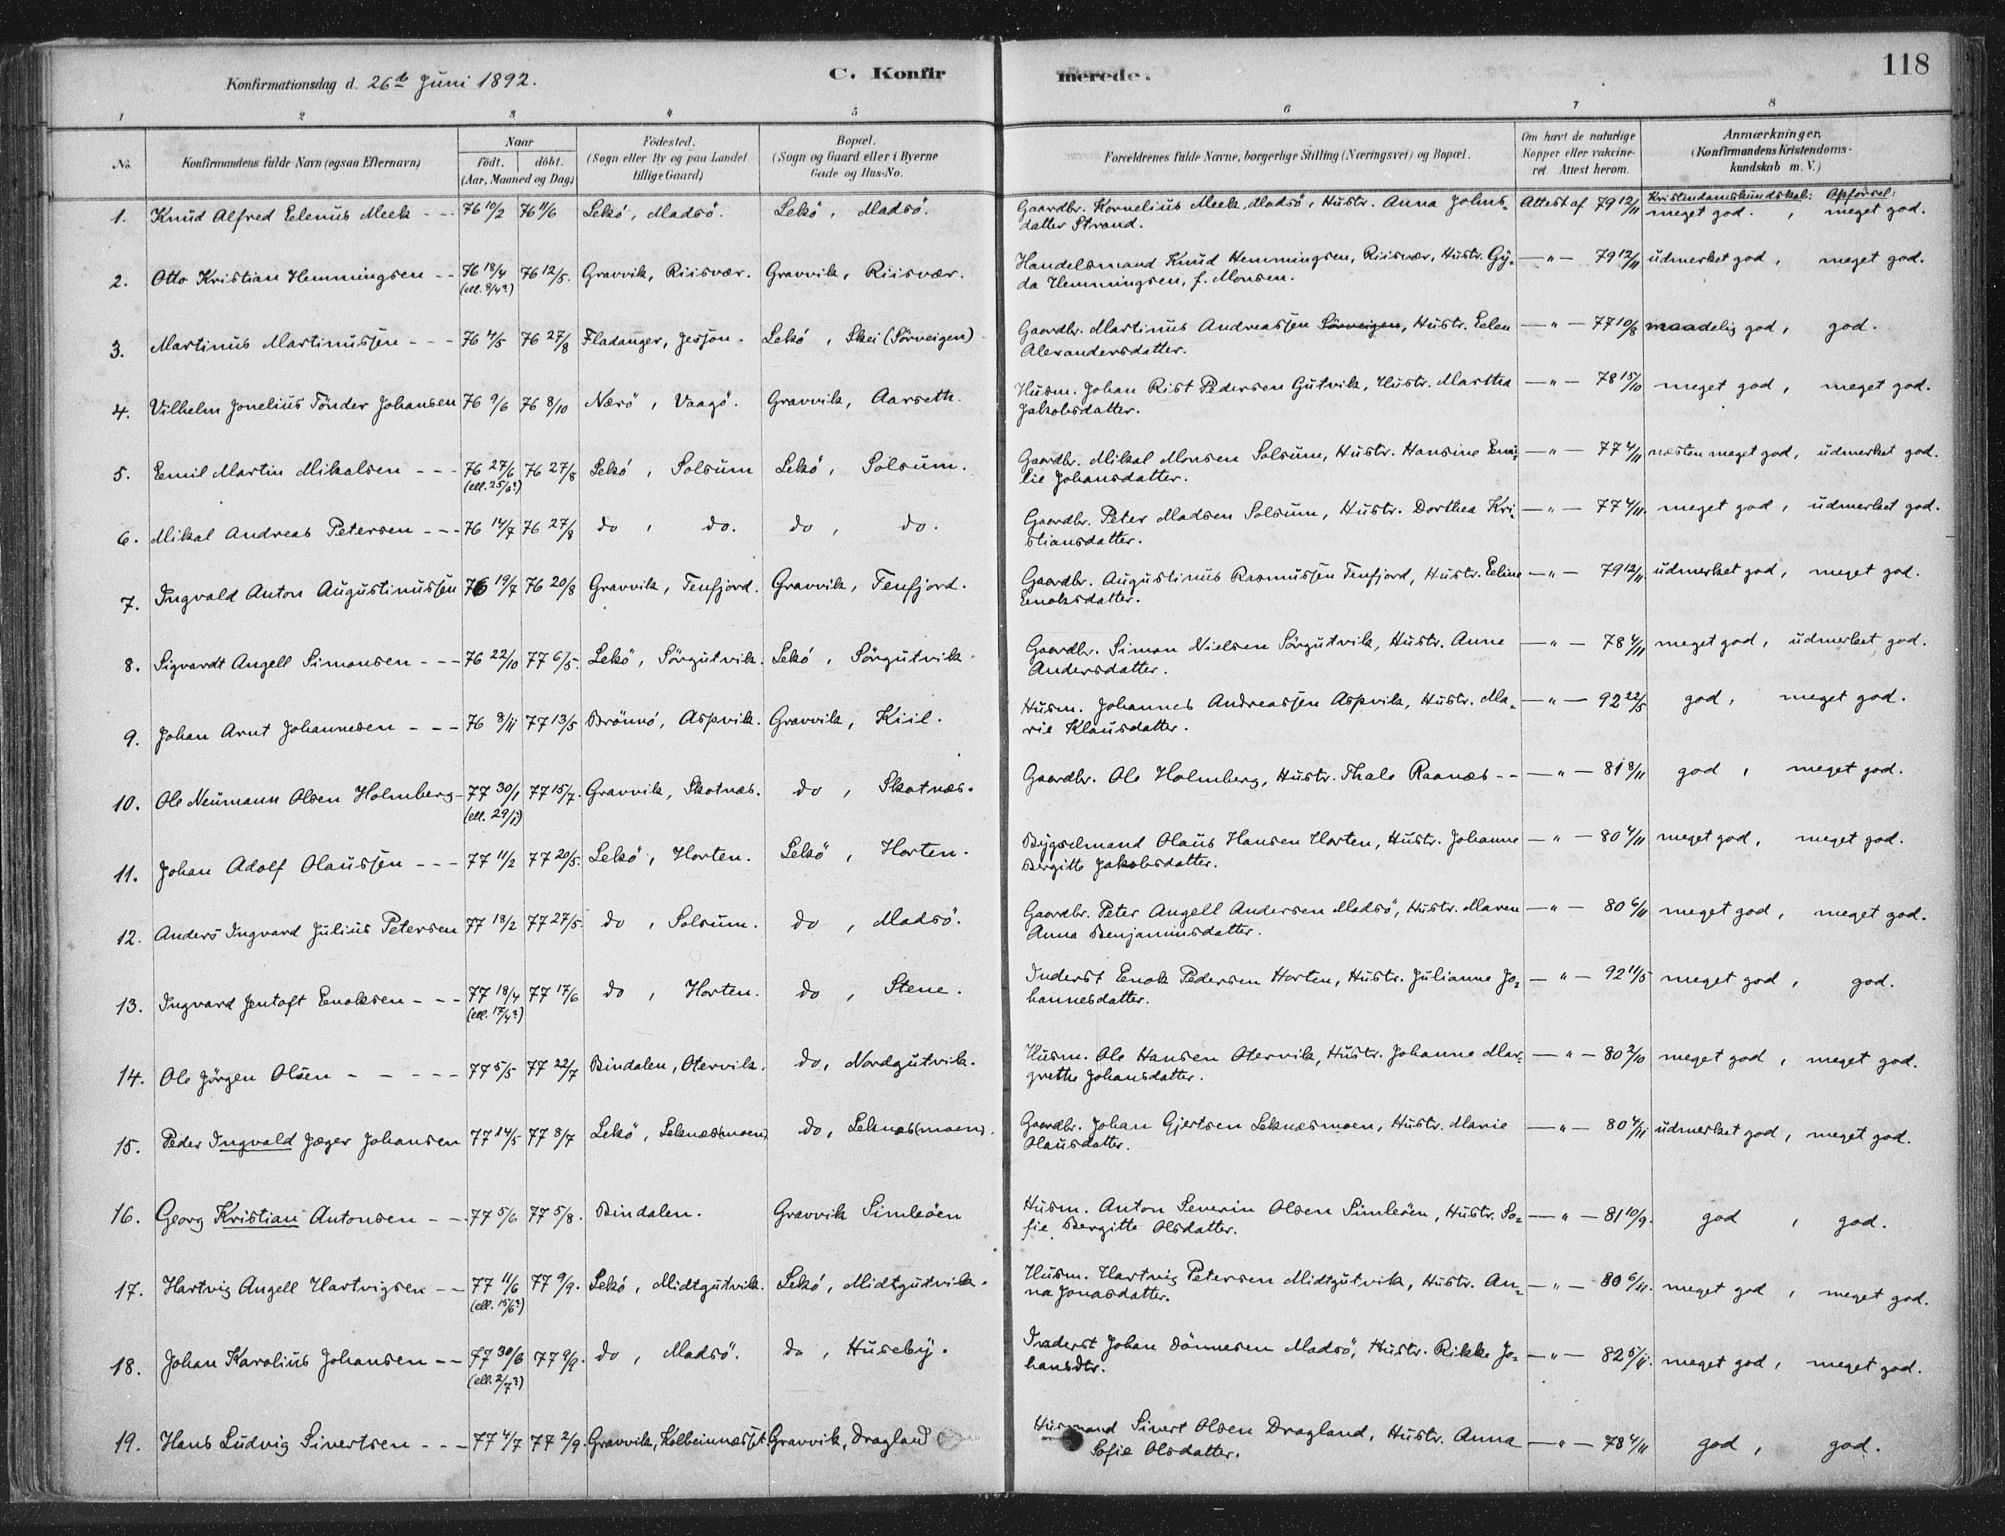 118
Konfirmationsdag d. 26de Juni 1892. C. Konfirmerede.
1 2 3 4 5 6 7 8
No. Konfirmandens fulde Navn (ogsaa Efternavn) Naar födt. döbt. (Aar, Maaned og Dag) Födested. (Sogn eller By og paa Landet tillige Gaard) Bopæl. (Sogn og Gaard eller i Byerne Gade og Hus-No. Forældrenes fulde Navne, borgerlige Stilling (Næringsvei) og Bopæl. Om havt de naturlige Kopper eller vakcineret. Attest herom. Anmærkninger. (Konfirmandens Kristendomskundskab m. V.)
Kristendomskundskab: Opförsel:
1. Knud Alfred Edenus Meek - - 76 10/2 76 11/6 Lekö, Madsö. Lekö, Madsö. Gaardbr. Kornelius Meek, Madsö, Hustr. Anna Johns- Attest af 79 12/11 meget god. , meget god.
datter Strand.
2. Otto Kristian Hemmingsen - - 76 18/4 76 12/5. Gravvik, Riisvær. Gravvik, Riisvær. Handelsmand Knud Hemmingsen, Riisvær, Hustr. Gy- — " — 79 12/11 udmerket god, meget god.
(ell. 9/4?) da Hemmingsen, f. Monsen.
3. Martinus Martinussen - - - 76 4/5 76 27/8 Fladanger, Jessön. Lekö, Skei (Sörveigen) Gaardbr. Martinus Andreassen Sörveigen, Hustr. Eelen — " — 77 10/8 maadelig god, god.
Alexandersdatter.
4. Vilhelm Jonelius Tönder Johansen 76 9/6 76 8/10 Nærö, Vaagö. Gravvik, Aarseth. Husm. Johan Rist Pedersen Gutvik, Hustr. Martha — " — 78 15/10 meget god, meget god.
Jakobsdatter.
5. Eemil Martin Mikalsen - - - 76 27/6 76 27/8 Lekö, Solsum Lekö, Solsum. Gaardbr. Mikal Monsen Solsum, Hustr. Hansine Emi- — " — 77 4/11 næsten meget god, udmerket god.
(ell. 25/6?) lie Johansdatter.
6. Mikal Andreas Petersen - - - 76 14/7 76 27/8 do, do. do, do. Gaardbr. Peter Madsen Solsum, Hustr. Dorthea Kri- — " — 77 4/11. meget god, udmerket god.
stiansdatter.
7. Ingvald Anton Augustinussen 76 19/7 76 20/8 Gravvik, Tenfjord. Gravvik, Tenfjord. Gaardbr. Augustinus Rasmussen Tenfjord, Hustr. Eeline — " — 79 12/11 udmerket god, meget god.
Enoksdatter.
8. Sigvardt Angell Simonsen - - - 76 22/10 77 6/5. Lekö, Sörgutvik. Lekö, Sörgutvik. Gaardbr. Simon Nielsen Sörgutvik, Hustr. Anne — " — 78 4/11 meget god, udmerket god.
Andersdatter.
9. Johan Arnt Johannesen - - - 76 8/11 77 13/5 Brönnö, Aspvik. Gravvik, Kiil. Husm. Johannes Andreassen Aspvik, Hustr. Ma- — " — 92 22/5 god, meget god.
rie Klausdatter.
10. Ole Neumann Olsen Holmberg - 77 30/1 77 15/7. Gravvik, Skotnæs. do, Skotnæs. Gaardbr. Ole Holmberg, Hustr. Thale Raanæs - - — " — 81 8/11 god, meget god.
(ell. 29/1)
11. Johan Adolf Olaussen - - - 77 11/2 77 20/5. Lekö, Horten. Lekö, Horten. Bygselmand Olaus Hansen Horten, Hustr. Johanne — " — 80 4/11 meget god, meget god.
Bergitte Jakobsdatter.
12. Anders Ingvard Julius Petersen 77 18/2 77 27/5. do, Solsum. do, Madsö. Gaardbr. Peter Angell Andersen Madsö, Hustr. Maren — " — 80 6/11 meget god, meget god.
Anna Benjaminsdatter.
13. Ingvard Jentoft Enoksen - - - 77 18/4 77 17/6 do, Horten. do, Stene. Inderst Enok Pedersen Horten, Hustr. Julianne Jo- — " — 92 11/5 meget god, god.
(ell. 17/4?) hannesdatter.
14. Ole Jörgen Olsen - - - - - 77 5/5 77 22/7 Bindalen, Otervik. do, Nordgutvik. Husm. Ole Hansen Otervik, Hustr. Johanne Mar- — " — 80 2/10 meget god, meget god.
grethe Johansdatter.
15. Peder Ingvald Jæger Johansen 77 14/5 77 8/7 Lekö, Leknæs(moen) do, Leknæs(moen). Gaardbr. Johan Gjertsen Leknæsmoen, Hustr. Marie — " — 80 4/11 udmerket god, meget god.
Olausdatter.
16. Georg Kristian Antonsen - - 77 5/6 77 5/8. Bindalen. Gravvik Simleöen Husm. Anton Severin Olsen Simleöen, Hustr. So- — " — 81 10/9. god, god.
fie Bergitte Olsdatter.
17. Hartvig Angell Hartvigsen - - 77 11/6 77 9/9. Lekö, Midtgutvik. Lekö, Midtgutvik. Husm. Hartvig Petersen Midtgutvik, Hustr. An- — " — 80 6/11. meget god, meget god.
(ell. 15/6?) na Jonasdatter.
18. Johan Karolius Johansen - - 77 30/6 77 9/9. do, Madsö. do, Huseby. Inderst Johan Dönnesen Madsö, Hustr. Rikke Jo- — " — 82 5/11. meget god, meget god.
(ell. 2/7?) hansdtr.
19. Hans Ludvig Sivertsen - - - 77 4/7 77 2/9. Gravvik, Kolbeinnæsset. Gravvik, Dragland Husmand Sivert Olsen Dragland, Hustr. Anna — " — 78 4/11 god, god.
Sofie Olsdatter.